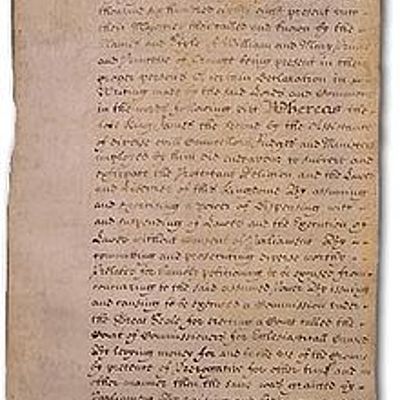 thousand six hundred eighty eight present unto
their Majesties then called and known by the
Names and Stile of William and Mary Prince
and Princesse of Orange being present in their
proper persons A certain Declaration in
Writing made by the said Lords and Commons
in the words following viz Whereas the
late King James the Second by the Assistance
of diverse evill Councellors Judges and Ministers
imployed by him did endeavor to subvert and
extirpate the Protestant Religion and the Lawes
and Liberties of this Kingdome By assuming
and exercising a power of dispensing with
and suspending of Lawes and the Execution of
Lawes without consent of Parliament By
committing and prosecuting diverse worthy
Prelates for humbly petitioning to be excused from
concurring to the said assumed Power By issuing
and causing to be executed a Commission under
the Great Seale for erecting a Court called the
Court of Commissioners for Ecclesiasticall Causes
By levying money for and to the use of the Crowne
by pretence of Prerogative for other time and in
other manner than the same was granted by
Parliament By raising and